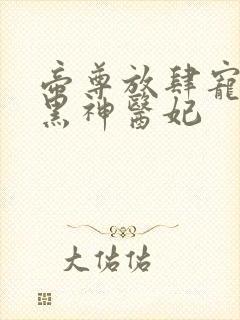 帝尊放肆寵
黑神醫妃
大佑佑